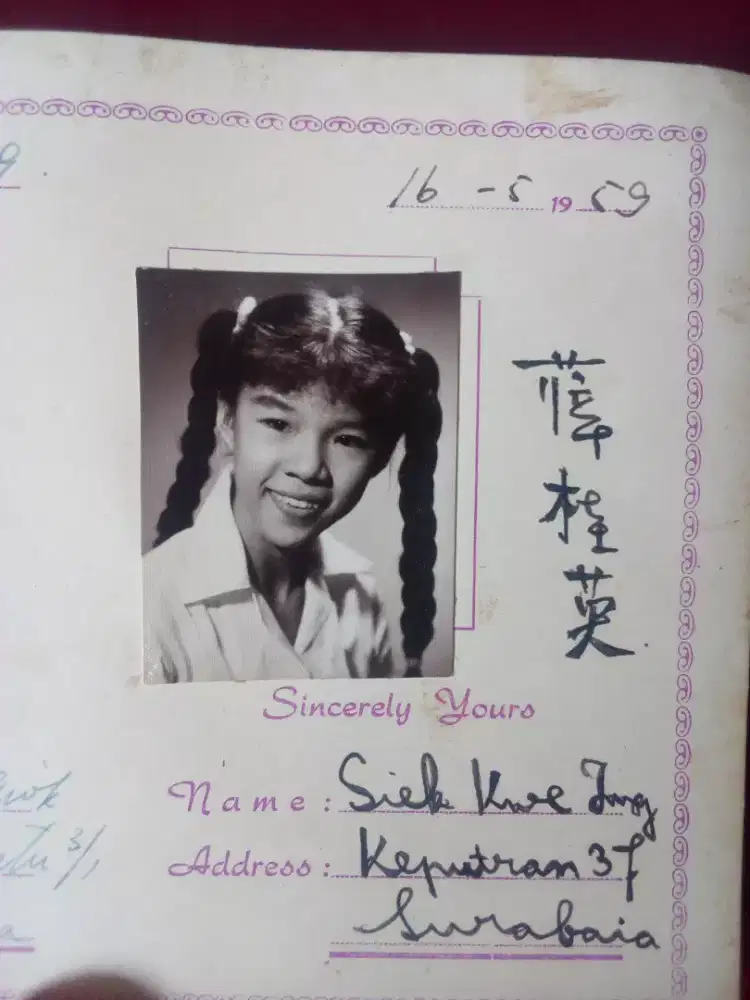 16 -5 19 59
薛桂英
Sincerely Yours
Name: Siek Kwe Ing
Address: Keputran 37
Surabaia